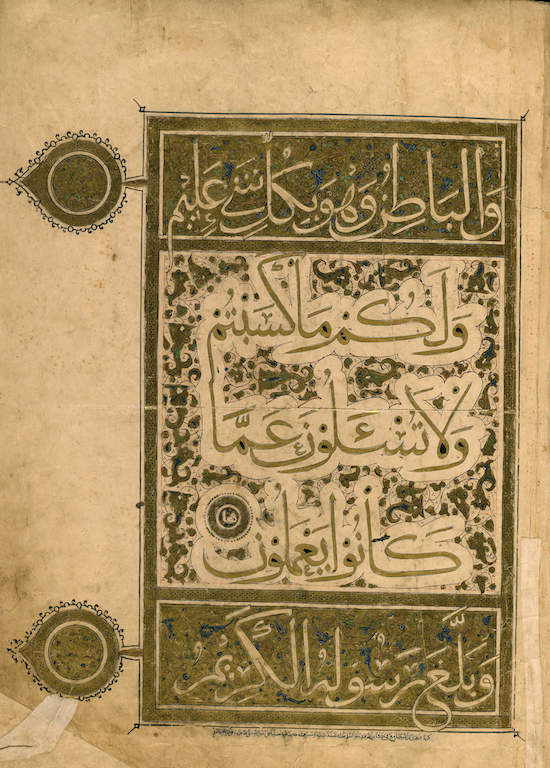 وَالْبَاطِنُ وَهُوَ بِكُلِّ شَيْءٍ عَلِيمٌ
وَلَكُمْ مَا كَسَبْتُمْ
وَلَا تُسْئَلُونَ عَمَّا
كَانُوا يَعْمَلُونَ
وَبَلَّغَ رَسُولُهُ الْكَرِيمُ